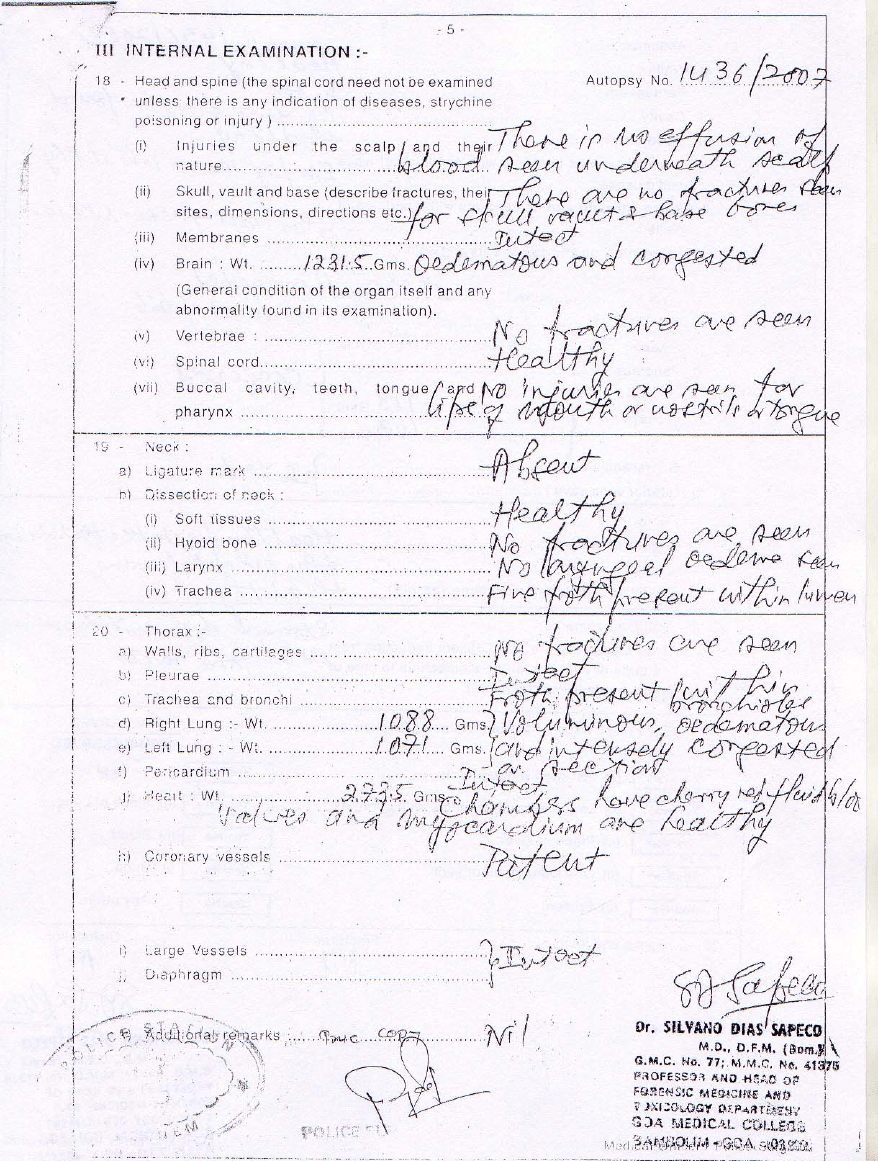 - 5 -
III INTERNAL EXAMINATION :-
18 - Head and spine (the spinal cord need not be examined Autopsy No. 1436/2007
unless there is any indication of diseases, strychine
poisoning or injury ) ..........
(i) Injuries under the scalp and their There is no effusion of
nature.......... blood seen underneath scalp
(ii) Skull, vault and base (describe fractures, their There are no fractures seen
sites, dimensions, directions etc.) for skull vault & base bones
(iii) Membranes .......... Intact
(iv) Brain : Wt. ........ 1231.5 Gms. Oedematous and congested
(General condition of the organ itself and any
abnormality found in its examination).
(v) Vertebrae : .......... No fractures are seen
(vi) Spinal cord.......... Healthy
(vii) Buccal cavity, teeth, tongue and No injuries are seen for
pharynx .......... lips of mouth or nostrils or tongue
19 - Neck :
a) Ligature mark .......... Absent
b) Dissection of neck :
(i) Soft tissues .......... Healthy
(ii) Hyoid bone .......... No fractures are seen
(iii) Larynx .......... No laryngeal oedema seen
(iv) Trachea .......... Fine froth present within lumen
20 - Thorax :-
a) Walls, ribs, cartilages .......... No fractures are seen
b) Pleurae .......... Intact
c) Trachea and bronchi .......... Froth present within bronchioles
d) Right Lung :- Wt. .......... 1088 Gms. Voluminous, oedematous
e) Left Lung : - Wt. .......... 1071 Gms. and intensely congested
on section
f) Pericardium .......... Intact
g) Heart : Wt. .......... 273.5 Gms Chambers have cherry red fluid blood
Valves and myocardium are healthy
h) Coronary vessels .......... Patent
i) Large Vessels .......... } Intact
j) Diaphragm ..........
k) Additional remarks : True copy Nil
Dr. SILVANO DIAS SAPECO
M.D., D.F.M. (Bom.)
G.M.C. No. 77; M.M.C. No. 41375
PROFESSOR AND HEAD OF
FORENSIC MEDICINE AND
TOXICOLOGY DEPARTMENT
GOA MEDICAL COLLEGE
BAMBOLIM - GOA
POLICE STATION
POLICE